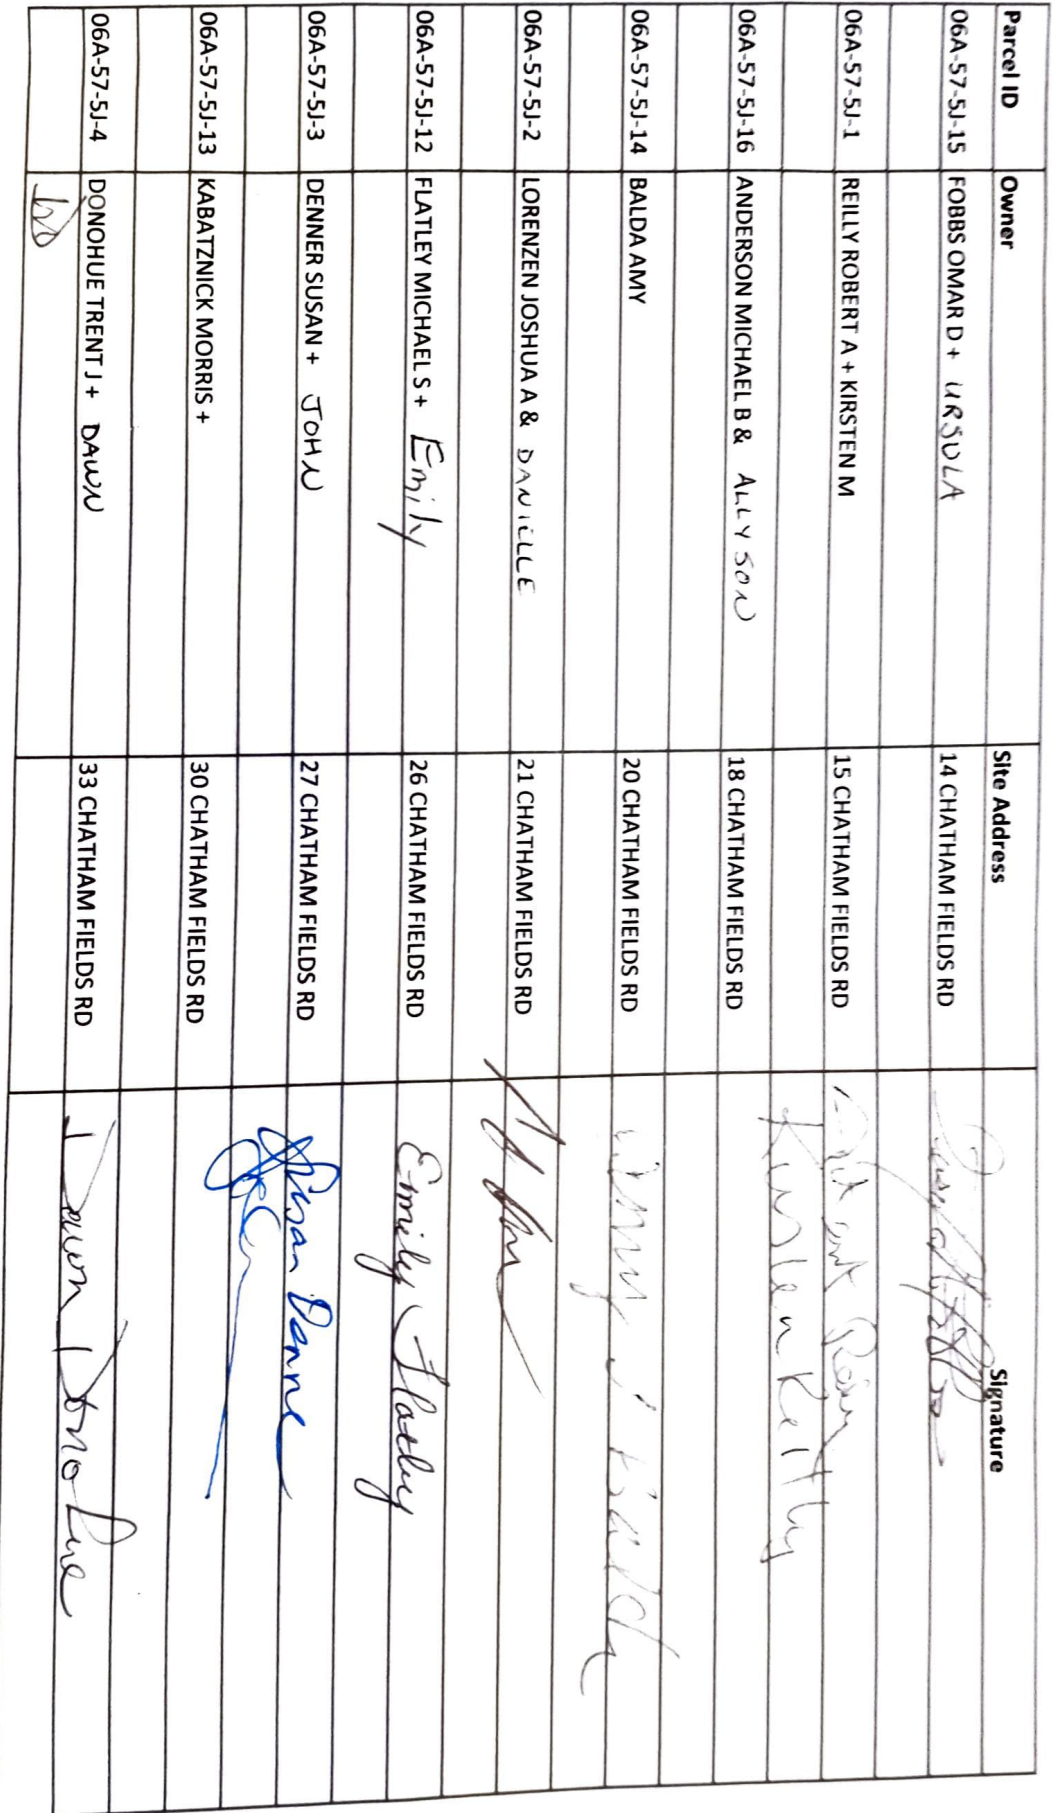 Parcel ID Owner Site Address Signature
06A-57-5J-15 FOBBS OMAR D + URSULA 14 CHATHAM FIELDS RD
06A-57-5J-1 REILLY ROBERT A + KIRSTEN M 15 CHATHAM FIELDS RD
Kirsten Reilly
06A-57-5J-16 ANDERSON MICHAEL B & ALLYSON 18 CHATHAM FIELDS RD
06A-57-5J-14 BALDA AMY 20 CHATHAM FIELDS RD Amy J Balda
06A-57-5J-2 LORENZEN JOSHUA A & DANIELLE 21 CHATHAM FIELDS RD
06A-57-5J-12 FLATLEY MICHAEL S + Emily 26 CHATHAM FIELDS RD Emily Flatley
06A-57-5J-3 DENNER SUSAN + JOHN 27 CHATHAM FIELDS RD Susan Denner
06A-57-5J-13 KABATZNICK MORRIS + 30 CHATHAM FIELDS RD
06A-57-5J-4 DONOHUE TRENT J + DAWN 33 CHATHAM FIELDS RD Dawn Donohue